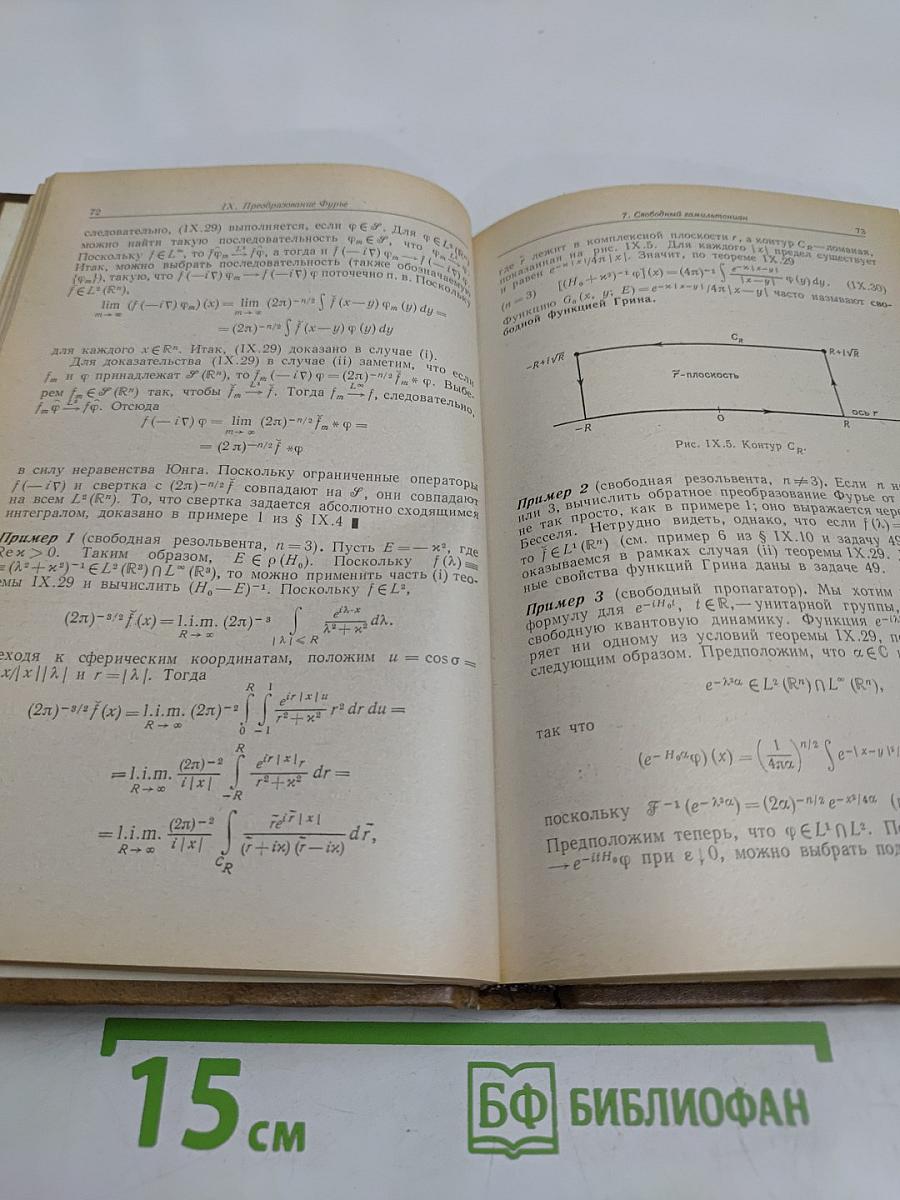 72
IX. Преобразование Фурье
следовательно, (IX.29) выполняется, если φ ∈ 𝒮. Для φ ∈ L²(ℝⁿ)
можно найти такую последовательность φₘ ∈ 𝒮, что φₘ —L²→ φ.
Поскольку f ∈ L^∞, то fφ̂ₘ —L²→ fφ̂, а тогда и f(—i∇) φₘ → f(—i∇) φ.
Итак, можно выбрать последовательность (также обозначаемую
{φₘ}), такую, что f(—i∇) φₘ → f(—i∇) φ поточечно п. в. Поскольку
f̌ ∈ L²(ℝⁿ),
lim (f(—i∇) φₘ)(x) = lim (2π)^{-n/2} ∫ f̌(x—y) φₘ(y) dy =
m→∞ m→∞
= (2π)^{-n/2} ∫ f̌(x—y) φ(y) dy
для каждого x ∈ ℝⁿ. Итак, (IX.29) доказано в случае (i).
Для доказательства (IX.29) в случае (ii) заметим, что если
fₘ и φ принадлежат 𝒮(ℝⁿ), то fₘ(—i∇) φ = (2π)^{-n/2} f̌ₘ * φ. Выбе-
рем fₘ ∈ 𝒮(ℝⁿ) так, чтобы f̌ₘ —L¹→ f̌. Тогда fₘ —L^∞→ f, следовательно,
fₘφ̂ —L²→ fφ̂. Отсюда
f(—i∇) φ = lim (2π)^{-n/2} f̌ₘ * φ =
m→∞
= (2π)^{-n/2} f̌ * φ
в силу неравенства Юнга. Поскольку ограниченные операторы
f(—i∇) и свертка с (2π)^{-n/2} f̌ совпадают на 𝒮, они совпадают
на всем L²(ℝⁿ). То, что свертка задается абсолютно сходящимся
интегралом, доказано в примере 1 из § IX.4 ∎
Пример 1 (свободная резольвента, n = 3). Пусть E = —ϰ², где
Re ϰ > 0. Таким образом, E ∈ ρ(H₀). Поскольку f(λ) =
=(λ²+ϰ²)^{-1} ∈ L²(ℝ³) ∩ L^∞(ℝ³), то можно применить часть (i) тео-
емы IX.29 и вычислить (H₀—E)^{-1}. Поскольку f ∈ L²,
(2π)^{-3/2} f̌(x) = l.i.m. (2π)^{-3} ∫ e^{iλ·x}/(λ²+ϰ²) dλ.
R→∞ |λ|⩽R
еходя к сферическим координатам, положим u = cos σ =
x/|x||λ| и r = |λ|. Тогда
(2π)^{-3/2} f̌(x) = l.i.m. (2π)^{-2} ∫₀^R ∫₋₁^1 e^{ir|x|u}/(r²+ϰ²) r² dr du =
R→∞
= l.i.m. (2π)^{-2}/(i|x|) ∫₋R^R e^{ir|x|}r/(r²+ϰ²) dr =
R→∞
= l.i.m. (2π)^{-2}/(i|x|) ∫_{C_R} r̃e^{ir̃|x|}/((r̃+iϰ)(r̃—iϰ)) dr̃,
R→∞
7. Свободный гамильтониан
73
где r̃ лежит в комплексной плоскости r, а контур C_R — ломаная,
показанная на рис. IX.5. Для каждого |x| предел существует
и равен e^{-ϰ|x|}/4π|x|. Значит, по теореме IX.29
(n = 3) [(H₀+ϰ²)^{-1} φ](x) = (4π)^{-1} ∫ e^{-ϰ|x—y|}/|x—y| φ(y) dy. (IX.30)
Функцию G₀(x, y; E) = e^{-ϰ|x—y|}/4π|x—y| часто называют сво-
бодной функцией Грина.
C_R
—R+i√R
R+i√R
r̃-плоскость
ось r
—R
0
R
Рис. IX.5. Контур C_R.
Пример 2 (свободная резольвента, n ≠ 3). Если n н
или 3, вычислить обратное преобразование Фурье от
не так просто, как в примере 1; оно выражается чер
Бесселя. Нетрудно видеть, однако, что если f(λ) =
то f̌ ∈ L¹(ℝⁿ) (см. пример 6 из § IX.10 и задачу 49
оказываемся в рамках случая (ii) теоремы IX.29.
ные свойства функций Грина даны в задаче 49.
Пример 3 (свободный пропагатор). Мы хотим
формулу для e^{-iH₀t}, t ∈ ℝ, — унитарной группы,
свободную квантовую динамику. Функция e^{-iλ
ряет ни одному из условий теоремы IX.29, по
следующим образом. Предположим, что α ∈ ℂ и
e^{-λ²α} ∈ L²(ℝⁿ) ∩ L^∞(ℝⁿ),
так что
(e^{-H₀α}φ)(x) = (1/4πα)^{n/2} ∫ e^{-|x—y|²/
поскольку ℱ^{-1}(e^{-λ²α}) = (2α)^{-n/2} e^{-x²/4α}
Предположим теперь, что φ ∈ L¹ ∩ L². П
→ e^{-itH₀}φ при ε ↓ 0, можно выбрать под
15 см
БФ БИБЛИОФАН